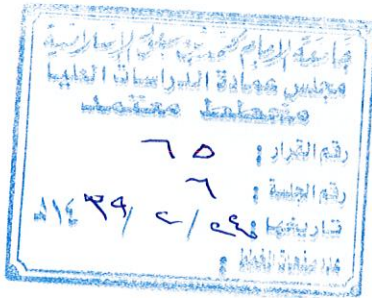 جامعة الإمام محمد بن سعود الإسلامية
مجلس عمادة الدراسات العليا
مخطط معتمد
رقم القرار : ٦٥
رقم الجلسة : ٦
تاريخها : ٢٤ / ٢ / ١٤٣٩هـ
عدد صفحات الخطة :